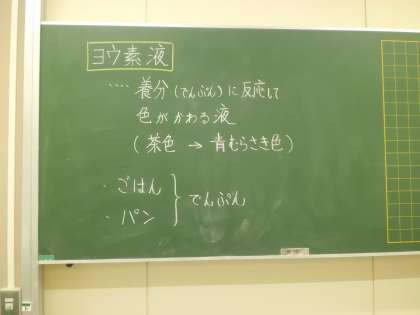 ヨウ素液
‥‥養分(でんぷん)に反応して
色がかわる液
(茶色→青むらさき色)
・ごはん
・パン
でんぷん